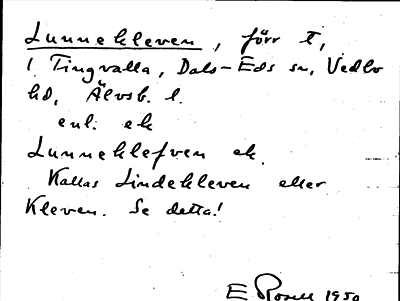 Lunnekleven, förr t,
1 Tingvalla, Dals-Eds sn, Vedbo
hd, Älvsb. l.
enl. ek
Lunneklefven ek.
Kallas Lindekleven eller
Kleven. Se detta!
E Rosell 1950